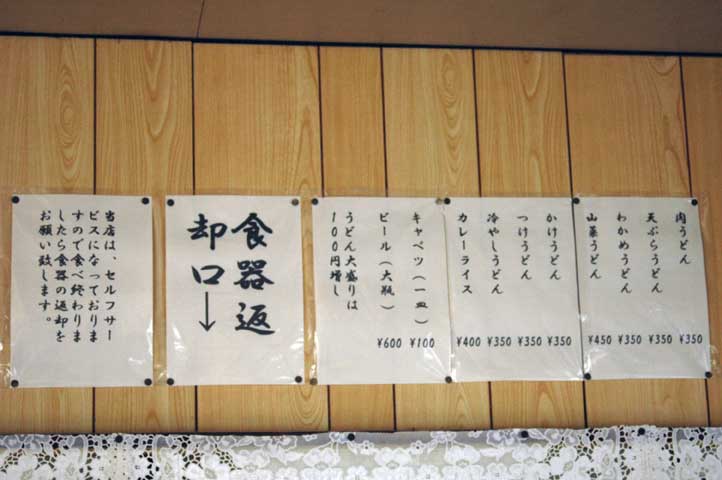 肉うどん ¥350
天ぷらうどん ¥350
わかめうどん ¥350
山菜うどん ¥450
かけうどん ¥350
つけうどん ¥350
冷やしうどん ¥350
カレーライス ¥400
キャベツ(一皿) ¥100
ビール(大瓶) ¥600
うどん大盛りは
100円増し
食器返
却口↓
当店は、セルフサー
ビスになっておりま
すので食べ終わりま
したら食器の返却を
お願い致します。